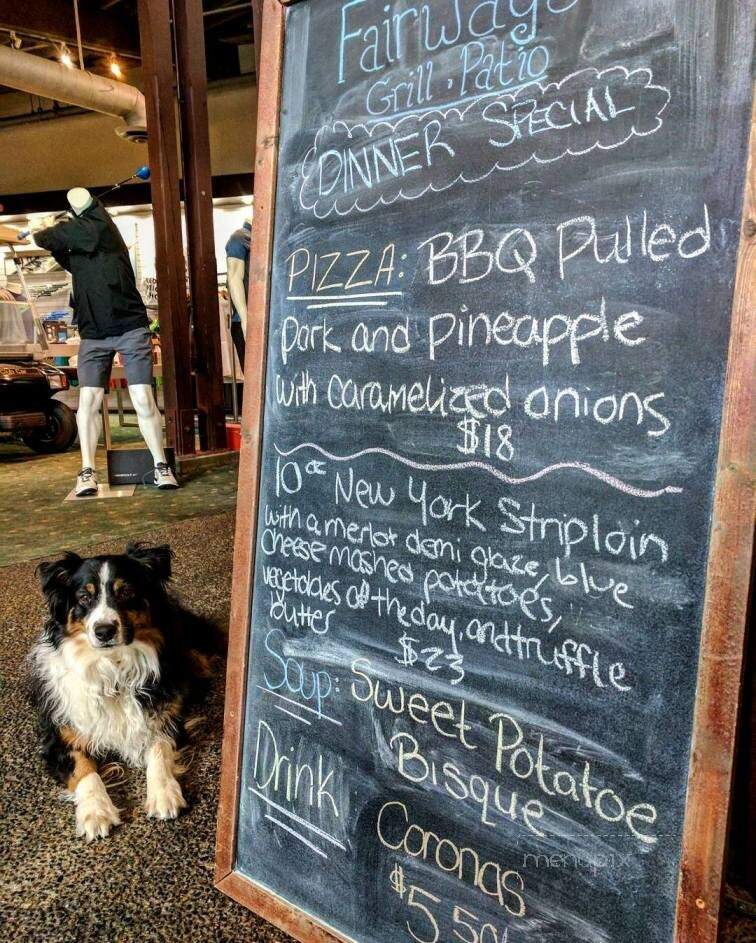 Fairways
Grill · Patio
DINNER SPECIAL
PIZZA: BBQ Pulled
pork and pineapple
with caramelized onions
$18
10oz New York Striploin
with a merlot demi glaze, blue
cheese mashed potatoes,
vegetables of the day, and truffle
butter
$23
Soup: Sweet Potatoe
Bisque
Drink
Coronas
$5.50
menupix